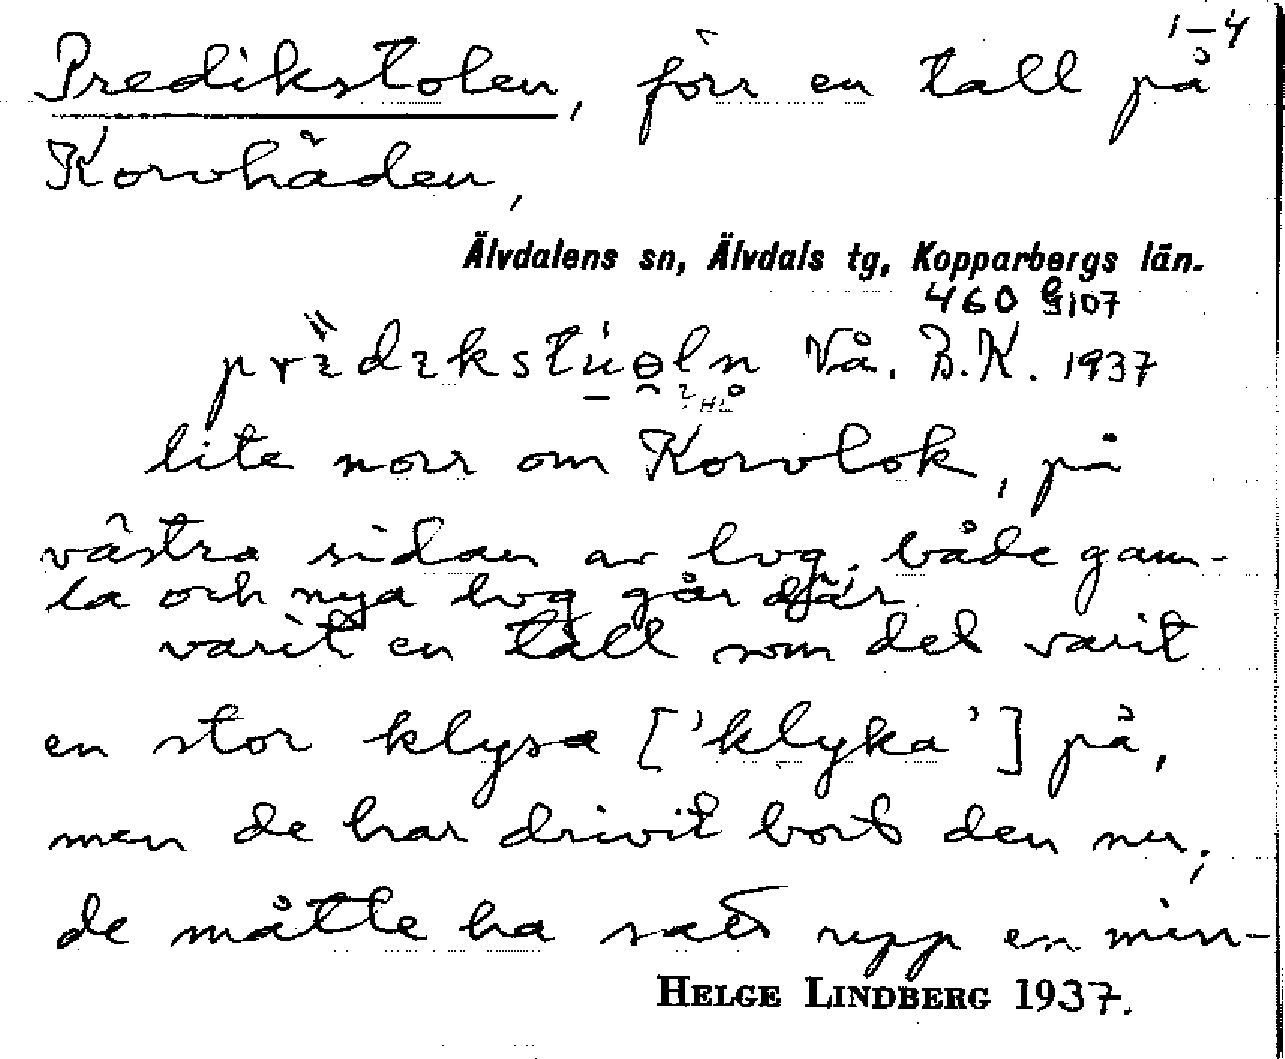 1–4
Predikstolen, förr en tall på
Korvhåden,
Älvdalens sn, Älvdals tg, Kopparbergs län.
460 107
Vå. B.K. 1937
lite norr om Korvlok, på
västra sidan av lvg. både gam-
la och nya lvg går där
varit en tall som det varit
en stor klysa ['klyka'] på,
men de har drivit bort den nu,
de måtte ha satt upp en min-
HELGE LINDBERG 1937.